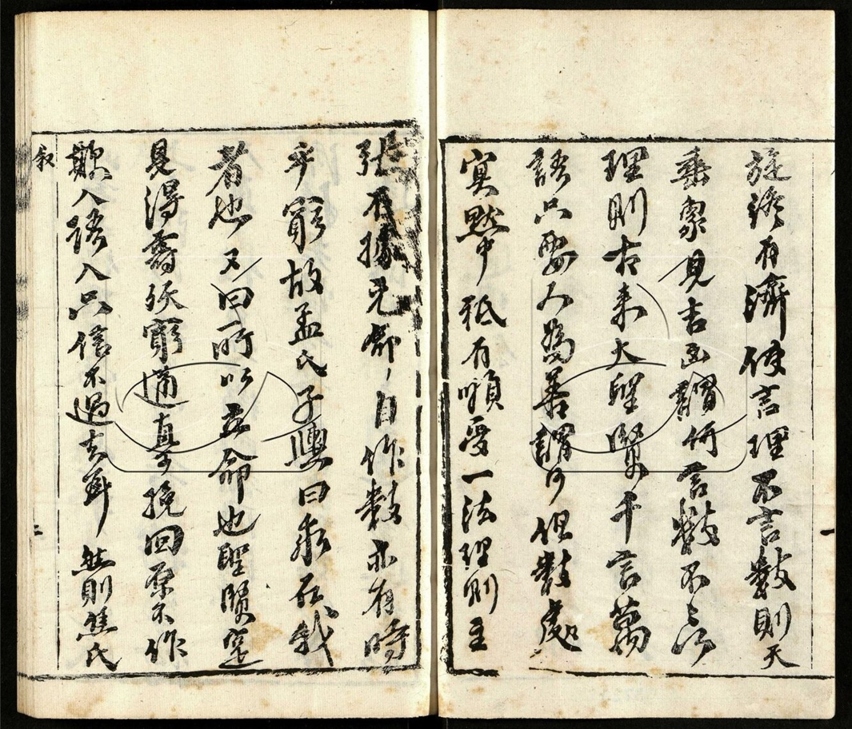 有濟使言理不言數則天
垂象見吉凶謂何言數不言
理則古來大聖賢千言萬
語只要人為善謂何但數處
冥默中秪有順受一法理則主
張不據自作數亦有時
乎窮故孟氏子輿曰求在我
者也又曰所以立命也聖賢定
見得壽夭窮通真可挽回原不作
欺人語人只信不過去耳然則焦氏
敘 二